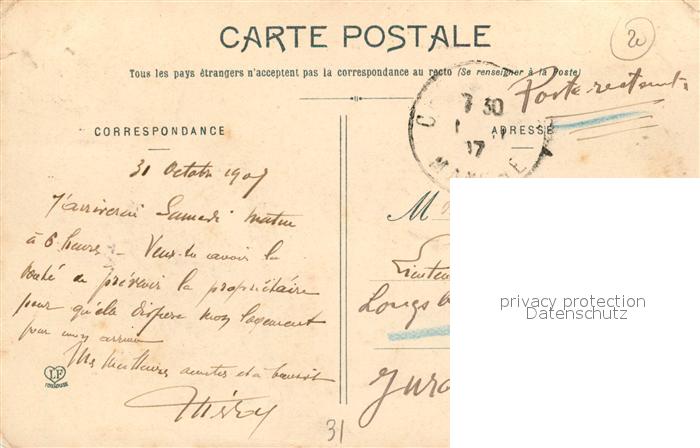 CARTE POSTALE
20
Tous les pays étrangers n'acceptent pas la correspondance au recto (Se renseigner à la Poste)
Poste restante
CORRESPONDANCE
ADRESSE
7 30
31 Octobre 1907
J'arriverai Samedi matin
à 6 heures. Veux-tu avoir la
bonté de prévenir la propriétaire
pour qu'elle dispose mon logement
pour mon arrivée
Mes meilleures amitiés et à bientôt
M
Lieuten
Longs
Jura
LF
TOULOUSE
31
privacy protection
Datenschutz